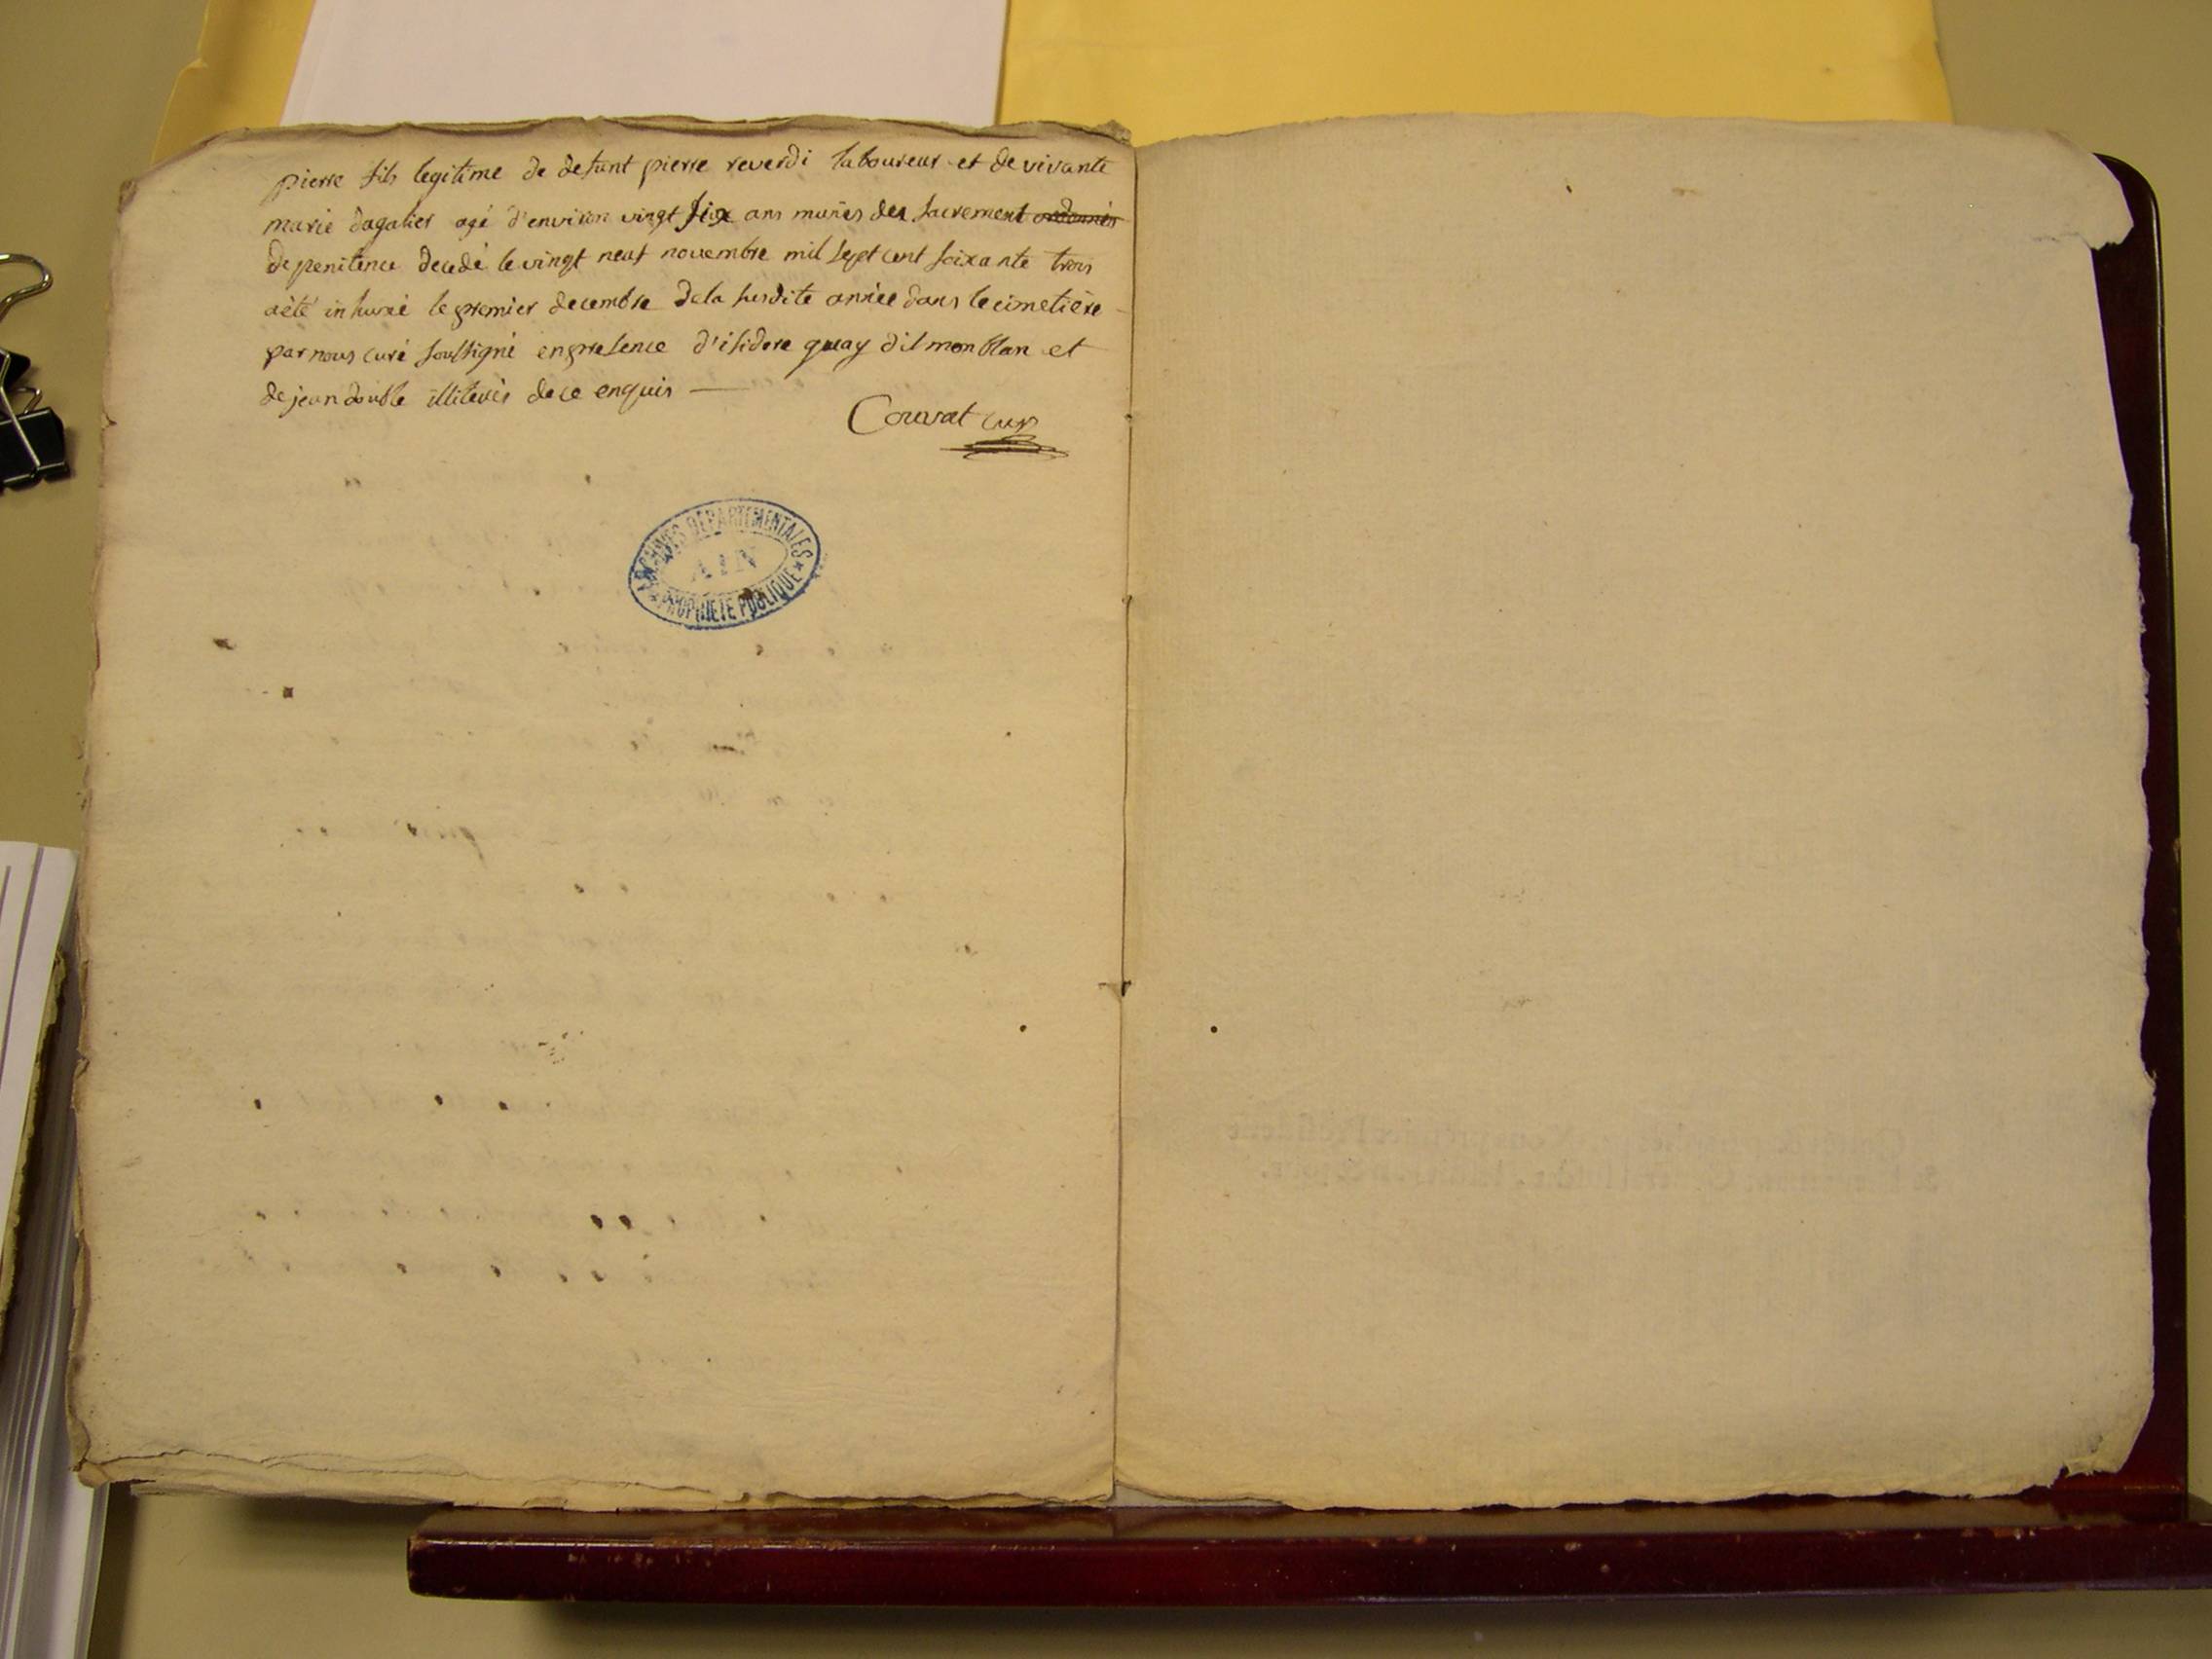 pierre fils legitime de defunt pierre reverdi laboureur et de vivante
marie dagalier agé d'environ vingt six ans munis des sacrement ordonnés
de penitence decedé le vingt neuf novembre mil sept cent soixante trois
a été inhumé le premier decembre de la susdite année dans le cimetière
par nous curé soussigné en presence d'isidore guay dit monblan et
de jean double illiterés de ce enquis —
Couvat curé
ARCHIVES DÉPARTEMENTALES
AIN
* PROPRIÉTÉ PUBLIQUE *